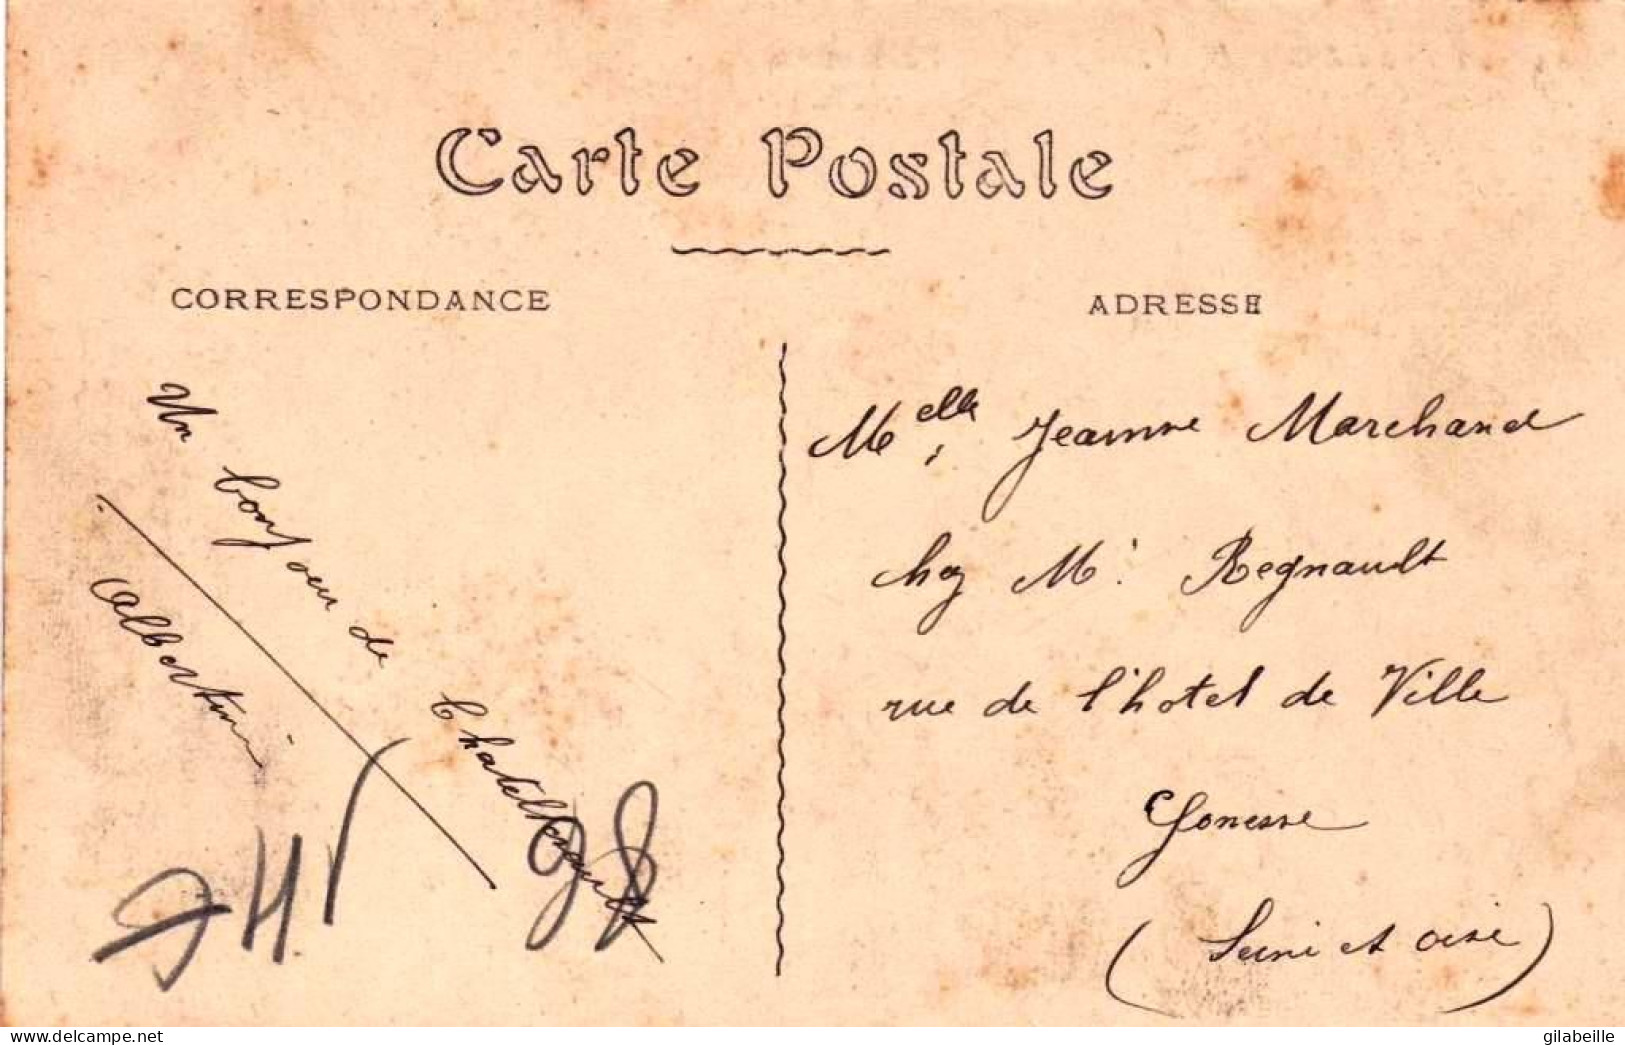 Carte Postale
CORRESPONDANCE
ADRESSE
Un bonjour de Chatellerault
Albertine
Melle Jeanne Marchand
chez Mr Regnault
rue de l'hotel de Ville
Gonesse
(Seine et oise)
delcampe.net
gilabeille